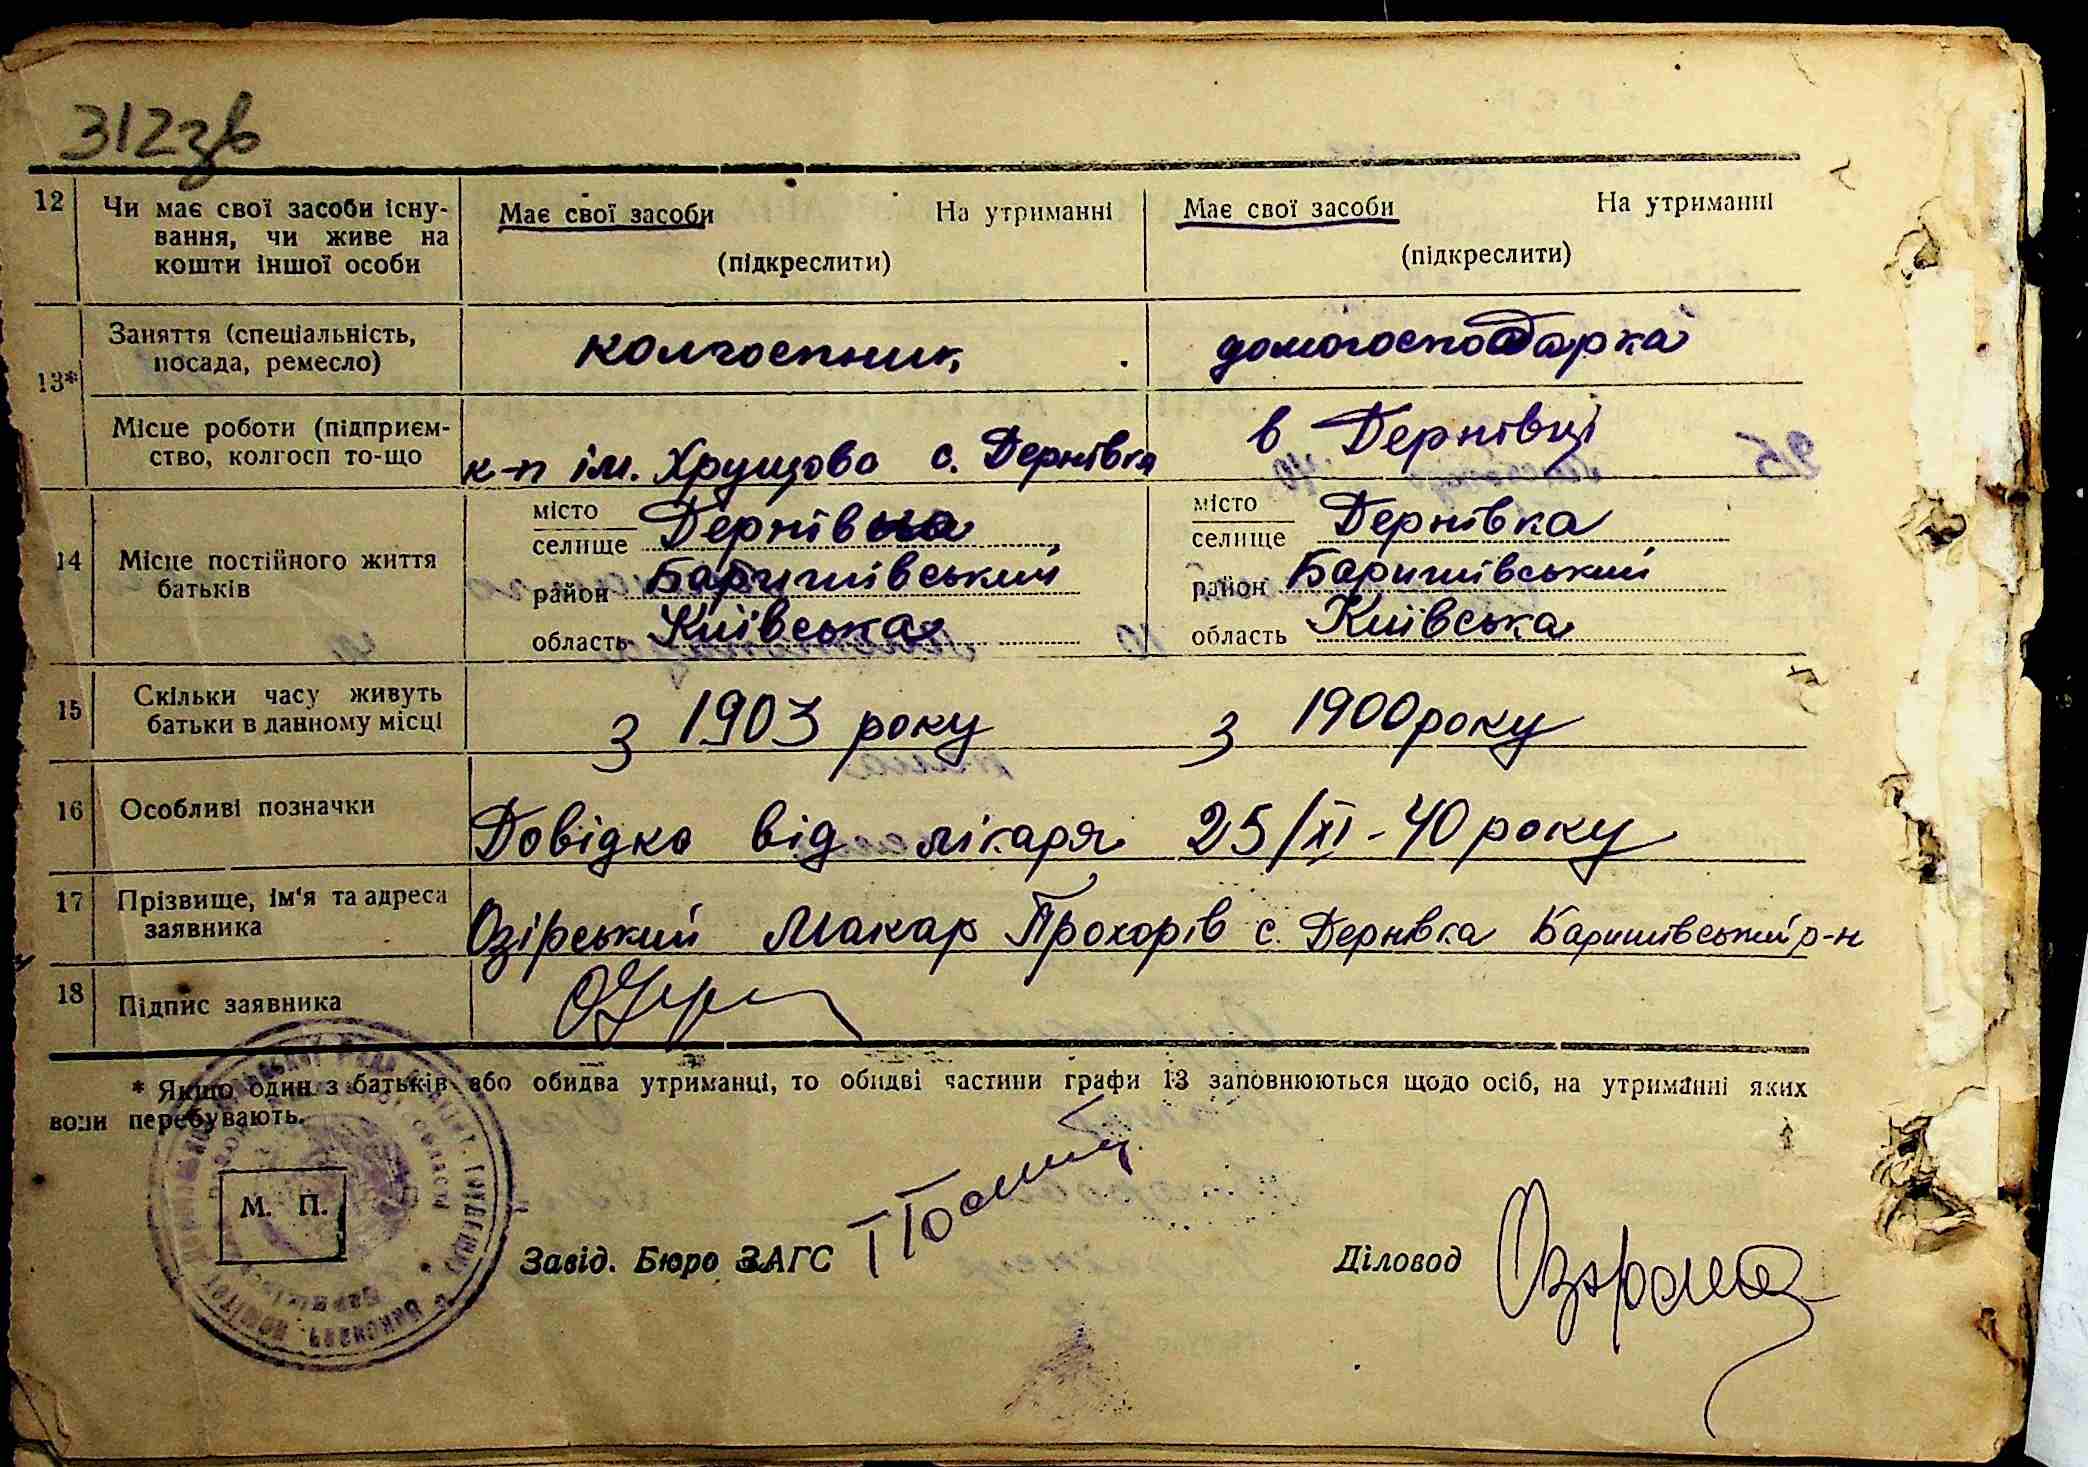 312зв
12 Чи має свої засоби існу- Має свої засоби На утриманні Має свої засоби На утриманні
вання, чи живе на (підкреслити) (підкреслити)
кошти іншої особи
13* Заняття (спеціальність, колгоспник домогосподарка
посада, ремесло)
Місце роботи (підприєм- к-п ім. Хрущова с. Дернівка в Дернівці
ство, колгосп то-що
14 Місце постійного життя батьків
місто селище Дернівка місто селище Дернівка
район Баришівський район Баришівський
область Київська область Київська
15 Скільки часу живуть з 1903 року з 1900 року
батьки в данному місці
16 Особливі позначки Довідка від лікаря 25/XI-40 року
17 Прізвище, ім'я та адреса Озірський Макар Прохорів с. Дернівка Баришівський р-н
заявника
18 Підпис заявника
* Якщо один з батьків або обидва утриманці, то обидві частини графи 13 заповнюються щодо осіб, на утриманні яких
вони перебувають.
М. П.
Завід. Бюро ЗАГС
Діловод